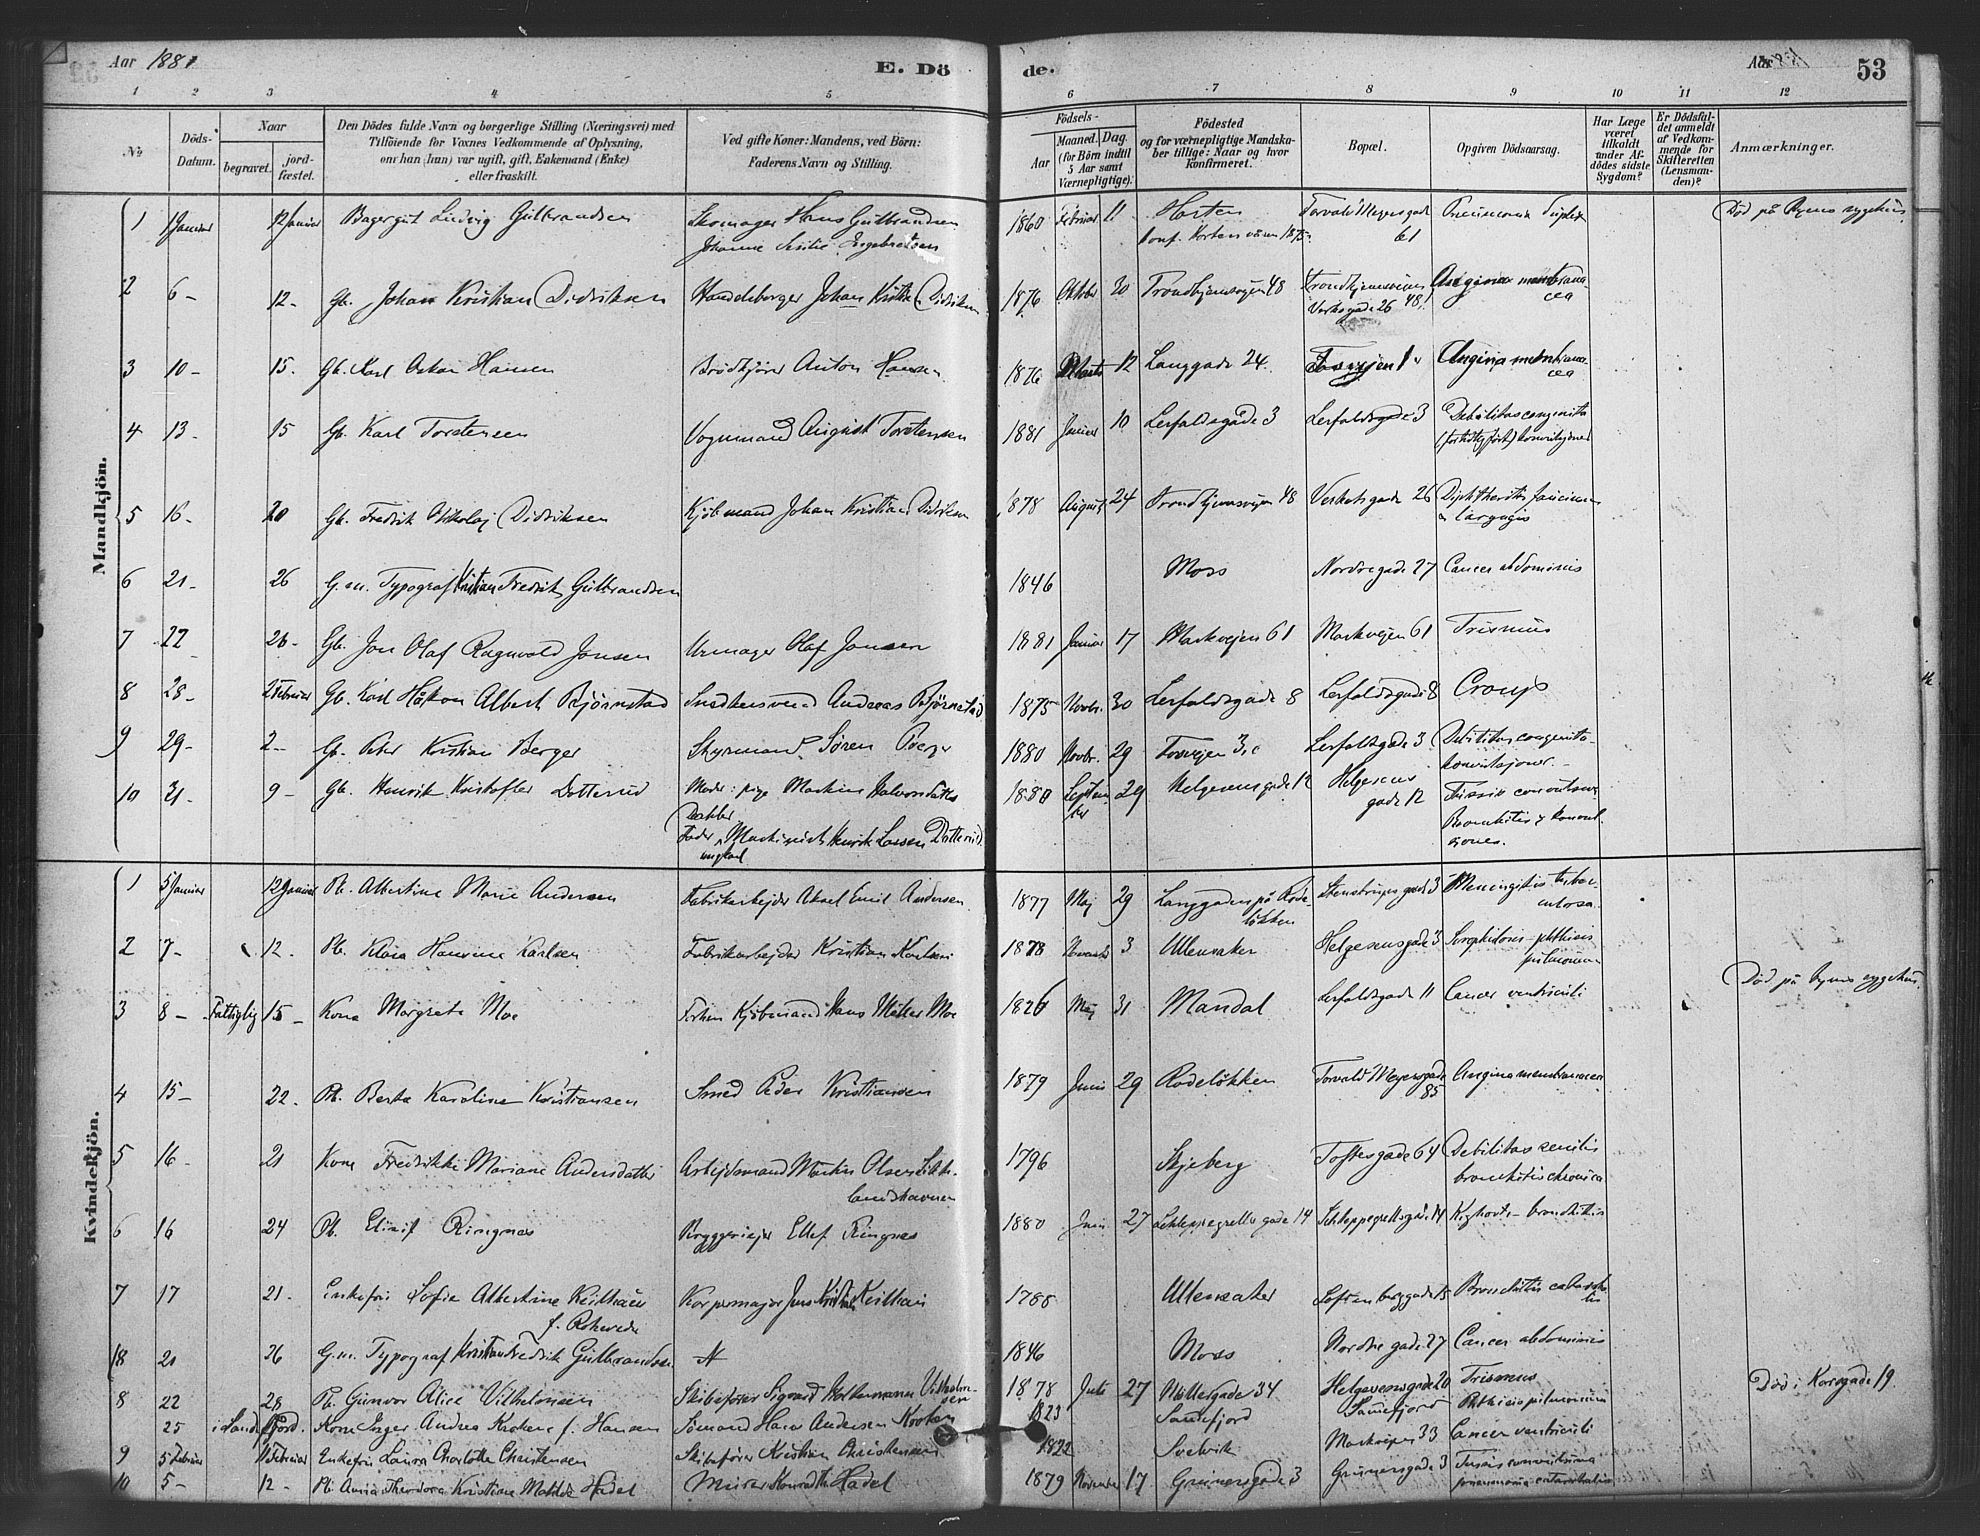 Aar 1881
E. Döde.
Aar 1881
53
1 2 3 4 5 6 7 8 9 10 11 12
No
Döds-Datum.
Naar
begravet.
jordfæstet.
Den Dödes fulde Navn og borgerlige Stilling (Næringsvei) med
Tilföiende for Voxnes Vedkommende af Oplysning,
om han (hun) var ugift, gift, Enkemand (Enke)
eller fraskilt.
Ved gifte Koner: Mandens, ved Börn:
Faderens Navn og Stilling.
Födsels-
Aar
Maaned. Dag.
(for Börn indtil
5 Aar samt
Værnepligtige).
Födested
og for værnepligtige Mandskaber tillige: Naar og hvor
konfirmeret.
Bopæl.
Opgiven Dödsaarsag.
Har Læge
været
tilkaldt
under Afdödes sidste
Sygdom?
Er Dödsfaldet anmeldt
af Vedkommende for
Skifteretten
(Lensmanden)?
Anmærkninger.
Mandkjön.
1 1 Januar 12 Januar Ludvig Gulbrandsen Skomager Hans Gulbrandsen 1860 Februar 11 Horten Torvald Meyersgade Pneumonia duplex Död på Byens sygehus
Johanne Engebretsen Konf. Horten våren 1875 61
2 6 - 12 - Gb. Johan Kristian Didriksen Handelsborger Johan Kristian Didriksen 1876 Oktober 20 Trondhjemsvejen 48 Trondhjemsveien 48 Angina membranacea
Verksgade 26
3 10 - 15 - Gb. Karl Oskar Hansen Brödkjörer Anton Hansen 1876 12 Langgade 24. Angina membranacea
4 13 - 15 Gb. Karl Torstensen Vognmand August Torstensen 1881 Januar 10 Lerfaldsgade 3 Lerfaldsgade 3 Debilitas congenita
5 16 - 20 Gb. Fredrik Nikolaj Didriksen Kjöbmand Johan Kristian Didriksen 1878 August 24 Trondhjemsvejen 48 Verksgade 26 Diphtheritis faucium
& laryngis
6 21 - 26 G.m. Typograf Kristian Fredrik Gulbrandsen 1846 Moss Nordregade 27 Cancer abdominis
7 22 26 - Gb. Jon Olaf Ragnvald Jonsen Urmager Olaf Jonsen 1881 Januar 17 Markvejen 61 Markvejen 61 Trismus
8 28 - 2 Februar Gb. Karl Håkon Albert Björnstad Snedkersvend Andreas Björnstad 1875 Novbr. 30 Lerfaldsgade 8 Lerfaldsgade 8 Croup
9 29 - 2 - Gb. Peter Kristian Berger Styrmand Sören Berger 1880 Novbr. 29 Lerfaldsgade 3 Debilitas congenita -
konvulsjoner. -
10 31 - 9 - Gb. Henrik Kristofer Dotterud Moder: pige 1880 September 29 Helgesensgade 12 Helgesensgade 12
Fader: Maskinist Henrik Larsen Dotterud
ungkarl
Kvindekjön.
1 5 Januar 12 Januar Pb. Albertine Marie Andersen Fabrikarbejder Aksel Emil Andersen 1877 Maj 29 Langgaden på Rodelökken Stenstrupsgade 3 Meningitis tuberculosa
2 7 - 12 - Pb. Klara Hansine Karlsen Fabrikarbejder Kristian Karlsen 1878 November 3 Ullensaker Helgesensgade 3 phthisis
pulmonum
3 8 - Fattiglig 15 - Kone Margrete Moe Kjöbmand Hans Möller Moe 1826 Maj 31 Mandal Lerfaldsgade 11 Cancer ventriculi Död på Byens sygehus
4 15 - 22 - Pb. Berta Karoline Kristiansen Smed Peder Kristiansen 1879 Juni 29 Rodelökken Torvald Meyersgade 85 Angina membranacea
5 16 - 21 Kone Fredrikke Mariane Andersdatter Arbejdsmand Martin Olsen 1796 Skjeberg Toftesgade 64 Debilitas senilis
bronchitis chronica
6 16 24 Pb. Ringnes Bryggeriejer Ellef Ringnes 1880 Juni 27 Schleppegrellsgade 14 Schleppegrellsgade 14 Kighoste - bronchitis
7 17 21 - Enkefru Sofie Albertine Keilhau Jens Kristian Keilhau 1788 Ullensaker Sofienberggade 15 Bronchitis catarrhalis
18 21 26 G.m. Typograf Kristian Fredrik Gulbrandsen 1846 Moss Nordre gade 27 Cancer abdominis
8 22 28 Pb. Gunvor Alice Vilhelmsen Skibsförer Sigvard Vilhelmsen 1878 Juli 27 Möllergade 34 Helgesensgade 20 Trismus Död i Korsgade 19
25 i Sandefjord. Kone Inger Andrea Kroken f. Hansen Sömand Hans Andersen Kroken 1823 Sandefjord Sandefjord Phthisis pulmonum
9 5 Februar Februar Enkefru Laura Charlotte Christensen Skibsförer Kristian Christensen 1822 Svelvik Markvejen 33 Cancer ventriculi
10 5 - 12 - Pb. Anna Theodora Kristiane Matilde Hadel Murer Hadel 1879 November 17 Grünersgade 3 Grünersgade 3 Tussis convulsiva
pneumonia catarrhalis